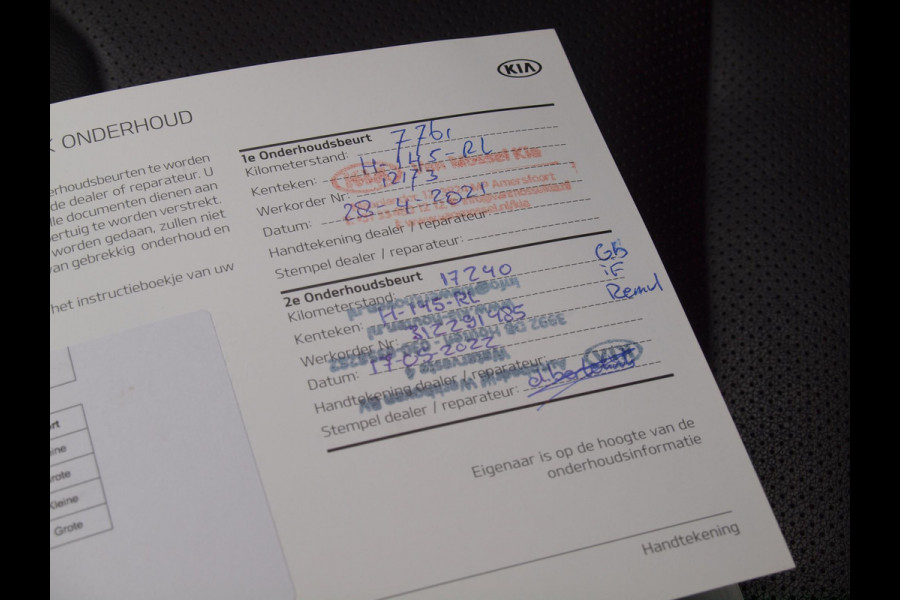 KIA
K ONDERHOUD
erhoudsbeurten te worden
de dealer of reparateur. U
lle documenten dienen aan
ertuig te worden verstrekt.
worden gedaan, zullen niet
van gebrekkig onderhoud en
het instructieboekje van uw
rt
ine
rote
Kleine
Grote
1e Onderhoudsbeurt
Kilometerstand: 776,
Kenteken: H-145-RL
Werkorder Nr: 12173
Datum: 28-4-2021
Handtekening dealer / reparateur:
Stempel dealer / reparateur:
Van Mossel Kia
Amersfoort
2e Onderhoudsbeurt
Kilometerstand: 17240
Kenteken: H-145-RL
Werkorder Nr: 312291485
Datum: 17-05-2022
Handtekening dealer / reparateur:
Stempel dealer / reparateur:
KIA
3992 DB Houten
GB
iF
Remvl
Eigenaar is op de hoogte van de
onderhoudsinformatie
Handtekening